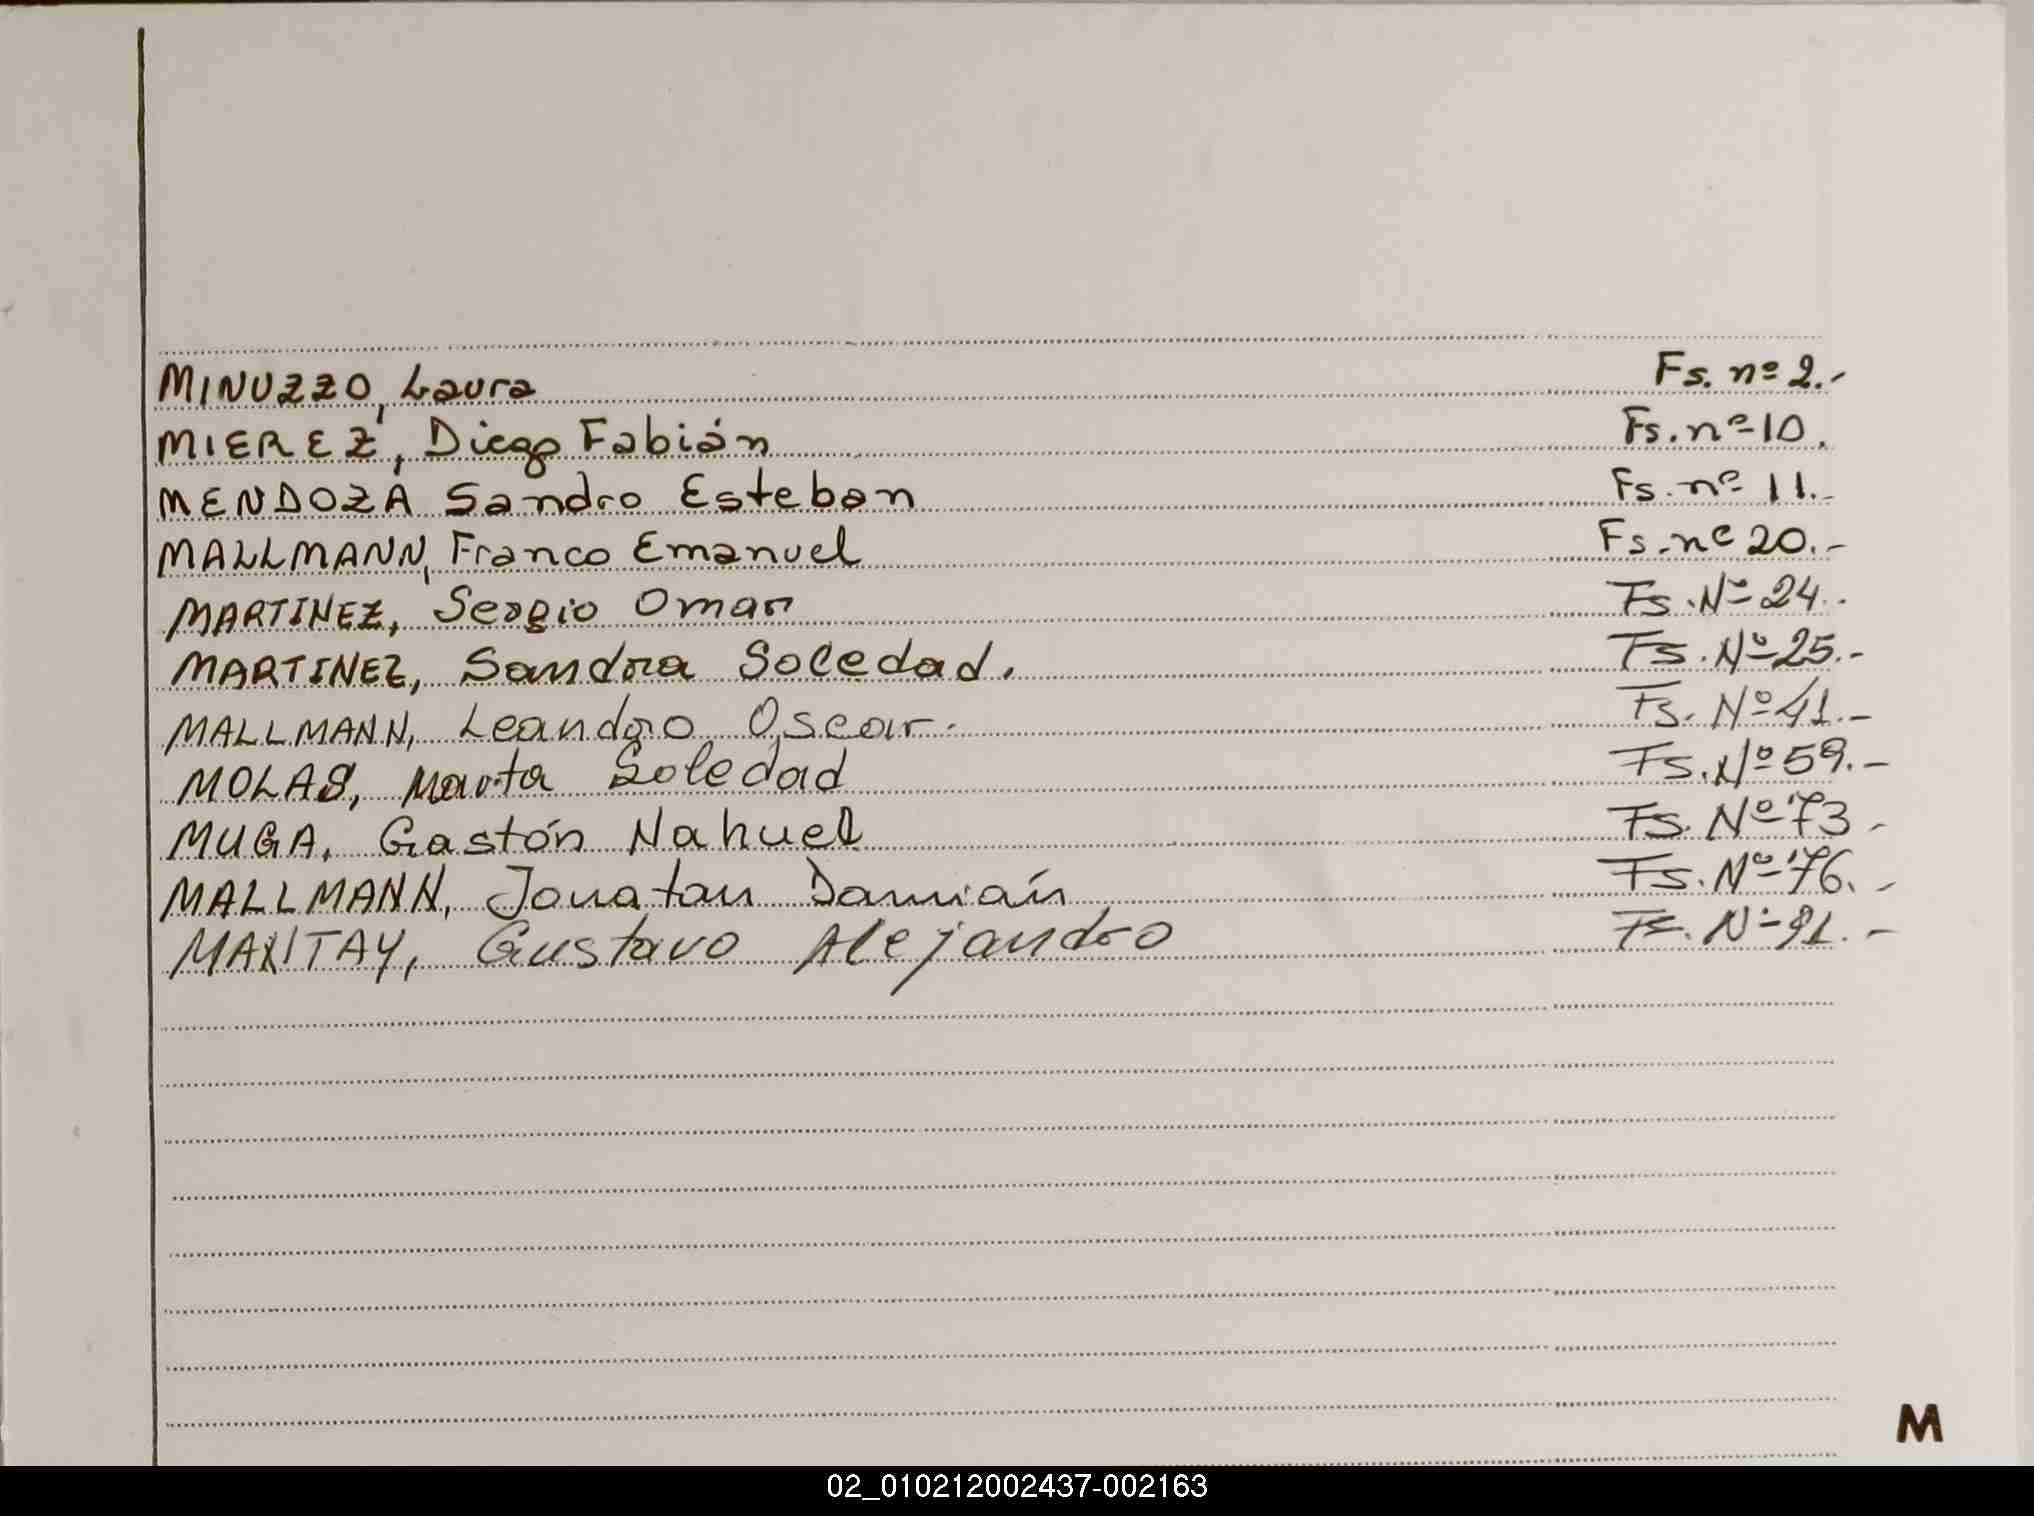 MINUZZO, Laura Fs. nº 2.-
MIEREZ, Diego Fabián Fs. nº 10.
MENDOZA Sandro Esteban Fs. nº 11.-
MALLMANN, Franco Emanuel Fs. nº 20.-
MARTINEZ, Sergio Omar Fs. Nº 24.
MARTINEZ, Sandra Soledad. Fs. Nº 25.-
MALLMANN, Leandro Oscar. Fs. Nº 41.-
MOLAS, Marta Soledad Fs. Nº 59.-
MUGA, Gastón Nahuel Fs. Nº 73.-
MALLMANN, Jonatan Damián Fs. Nº 76.-
Gustavo Alejandro Fs. Nº
M
02_010212002437-002163